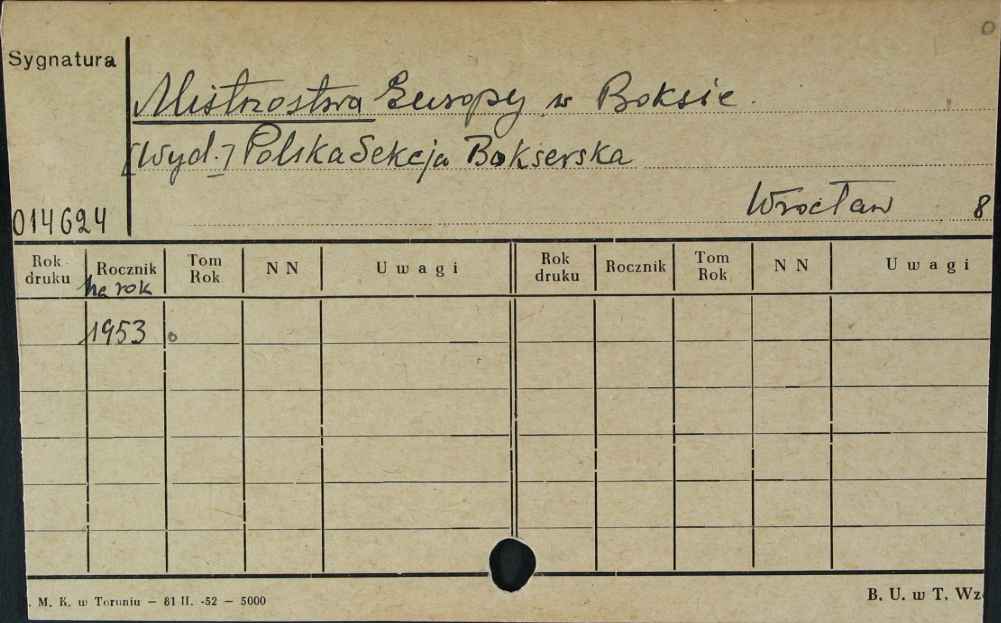 Sygnatura
Mistrzostwa Europy w Boksie.
[Wyd.] Polska Sekcja Bokserska
Wrocław 8
014624
Rok druku Rocznik Tom Rok NN Uwagi Rok druku Rocznik Tom Rok NN Uwagi
na rok
1953
. M. K. w Toruniu — 81 II. -52 — 5000
B. U. w T. Wz